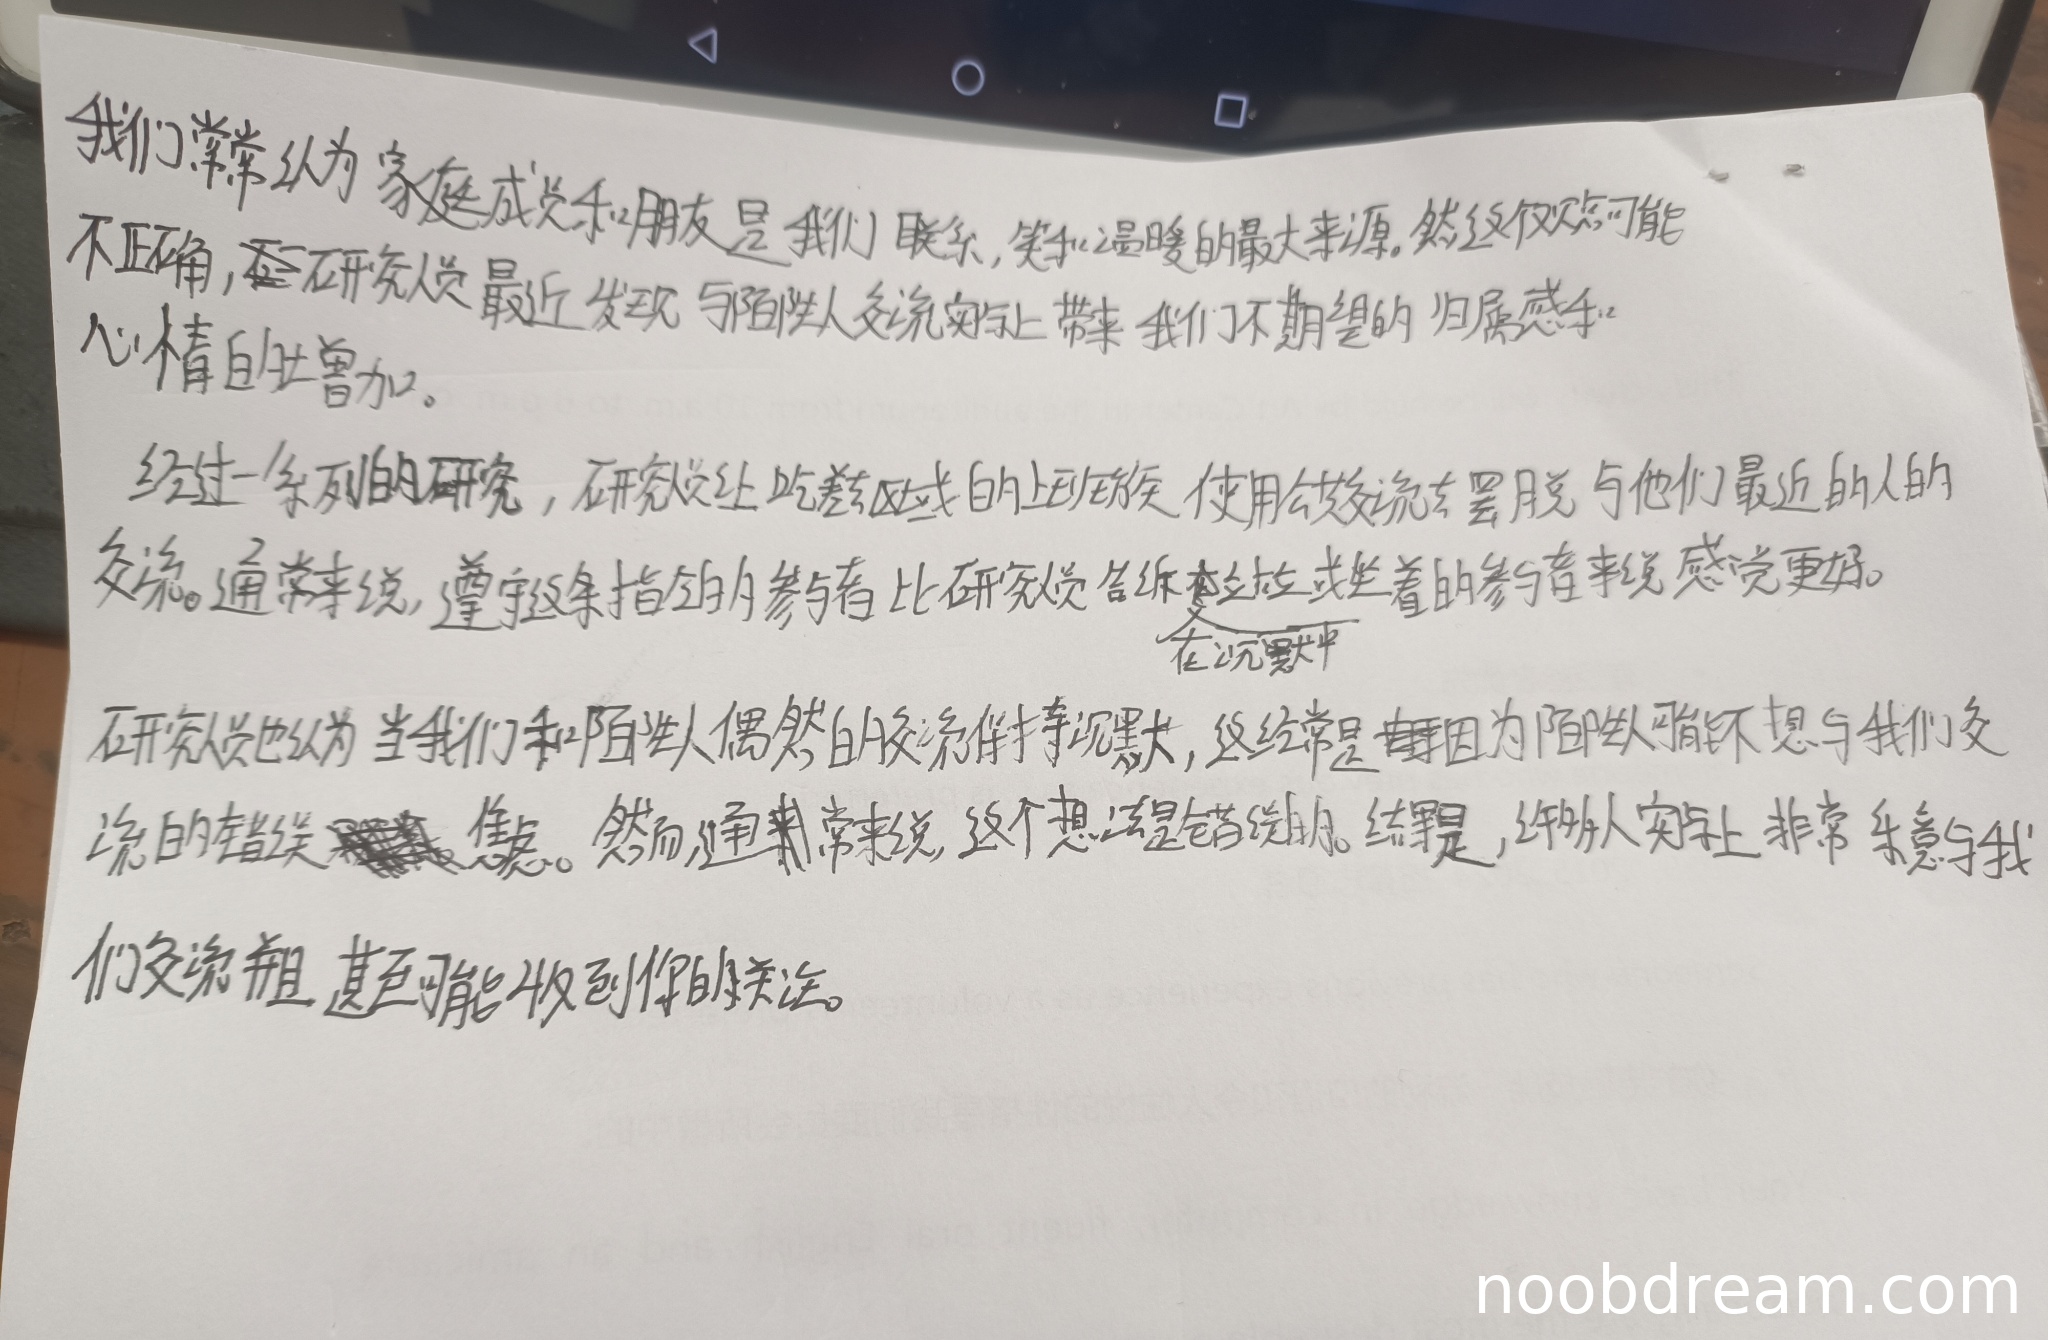 我们常常认为家庭成员和朋友是我们联系，笑和温暖的最大来源。然这仅观点可能
不正确，研究人员最近发现与陌生人交流实际上带来我们不期望的归属感和
心情的增加。
经过一系列的研究，研究人员让吃差去区域的上班族使用公共交流去罢脱与他们最近的人的
交流。通常来说，遵守这条指令的参与者比研究人员告诉站立或坐着的参与者来说感觉更好。
在沉默中
研究人员也认为当我们和陌生人偶然的交流保持沉默，这经常是因为陌生人可能不想与我们交
流的错误焦虑。然而，通常来说，这个想法是错误的。结果是，许多人实际上非常乐意与我
们交流并且甚至可能收到你的关注。
noobdream.com